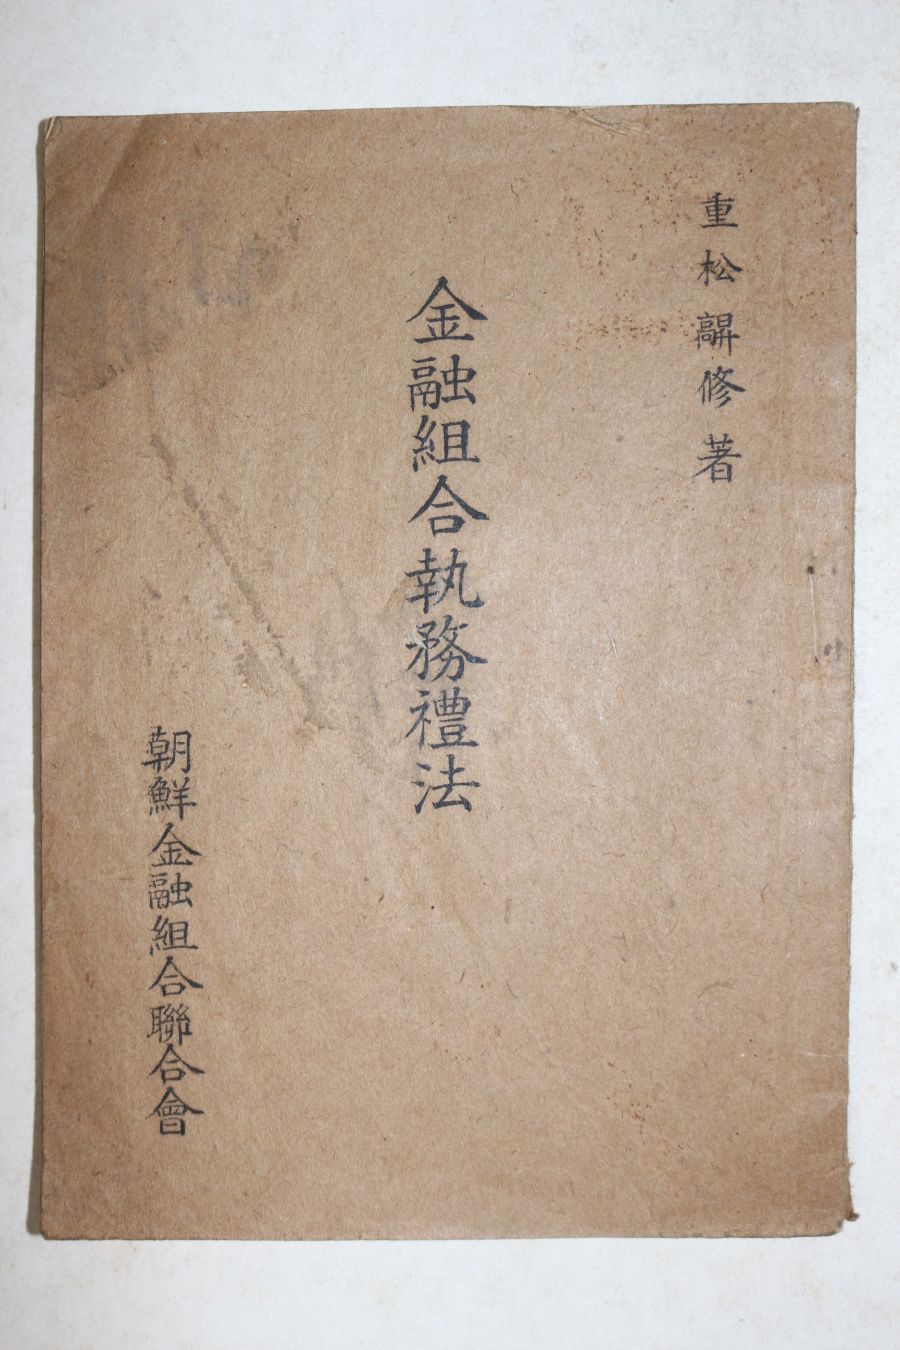 重松髜修著
金融組合執務禮法
朝鮮金融組合聯合會